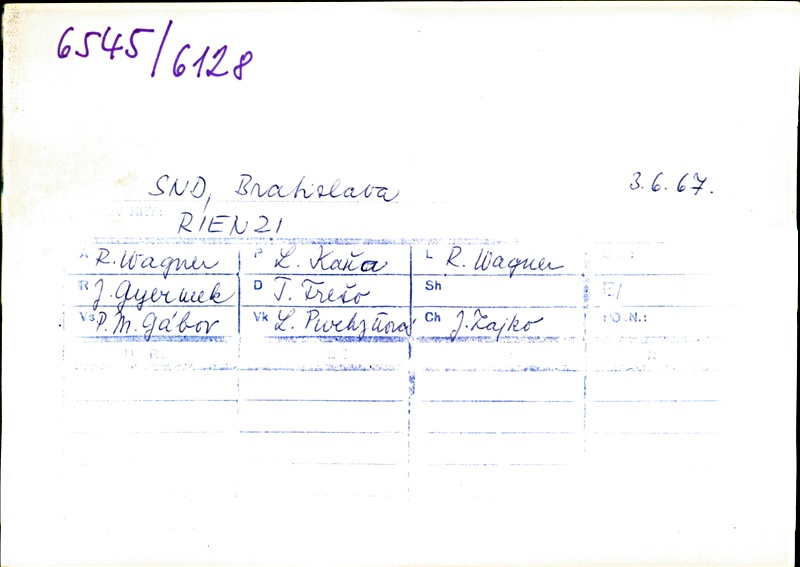 6545/6128
SND, Bratislava 3.6.67.
RIENZI
A R. Wagner P L. Kaňa L R. Wagner
R J. Gyermek D T. Frešo Sh E/
Vs P. M. Gábor Vk L. Ch J. Zajko PO.N.: